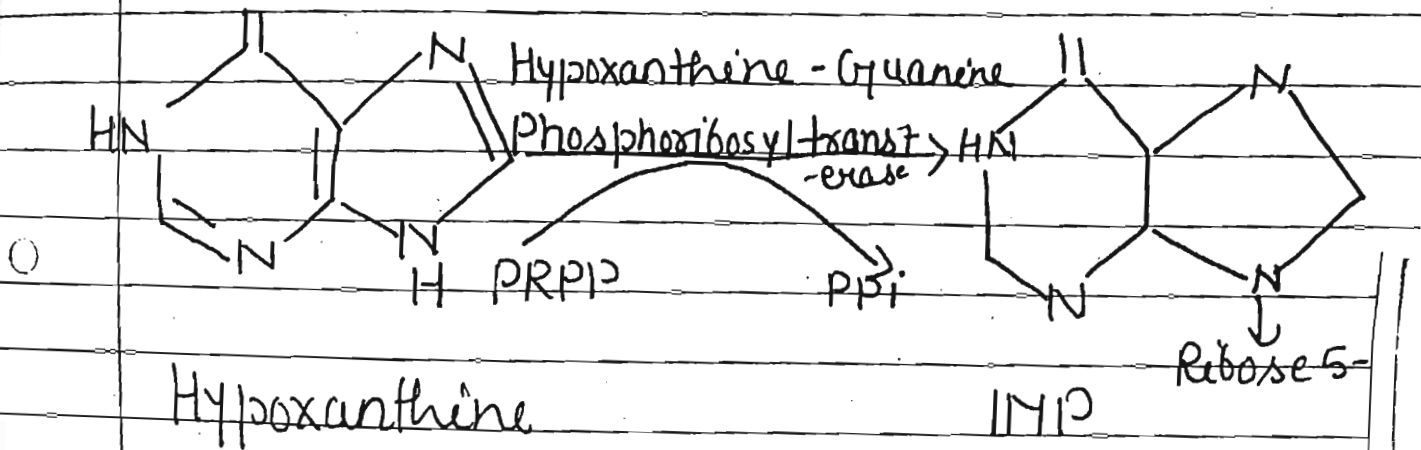 N
HN
N
N
H
Hypoxanthine - Guanine
Phosphoribosyl transf
-erase
PRPP
PPi
N
HN
N
N
Ribose 5-
Hypoxanthine
IMP